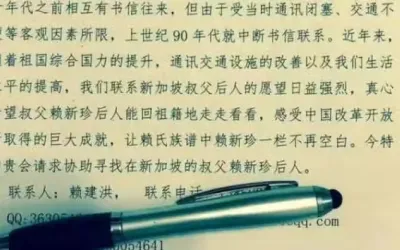 年代之前相互有书信往来，但由于受当时通讯闭塞、交通不
等客观因素所限，上世纪90年代就中断书信联系。近年来，
着祖国综合国力的提升，通讯交通设施的改善以及我们生活
平的提高，我们联系新加坡叔父后人的愿望日益强烈，真心
望叔父赖新珍后人能回祖籍地走走看看，感受中国改革开放
取得的巨大成就，让赖氏族谱中赖新珍一栏不再空白。今特
贵会请求协助寻找在新加坡的叔父赖新珍后人。
联系人：赖建洪，  联系电话
QQ:36305 qq.com
3054641